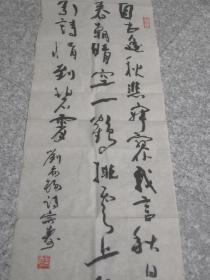 自古逢秋悲寂寥我言秋日
春朝晴空一鹤排云上便
引诗情到碧霄刘禹锡诗